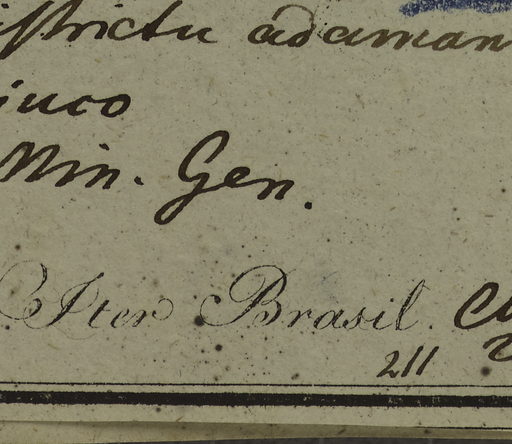 istrictu adaman
juco
Min. Gen.
Iter Brasil.
211